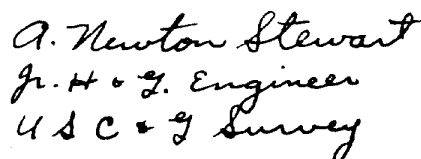 A. Newton Stewart
Jr. H & G. Engineer
U S C & G Survey